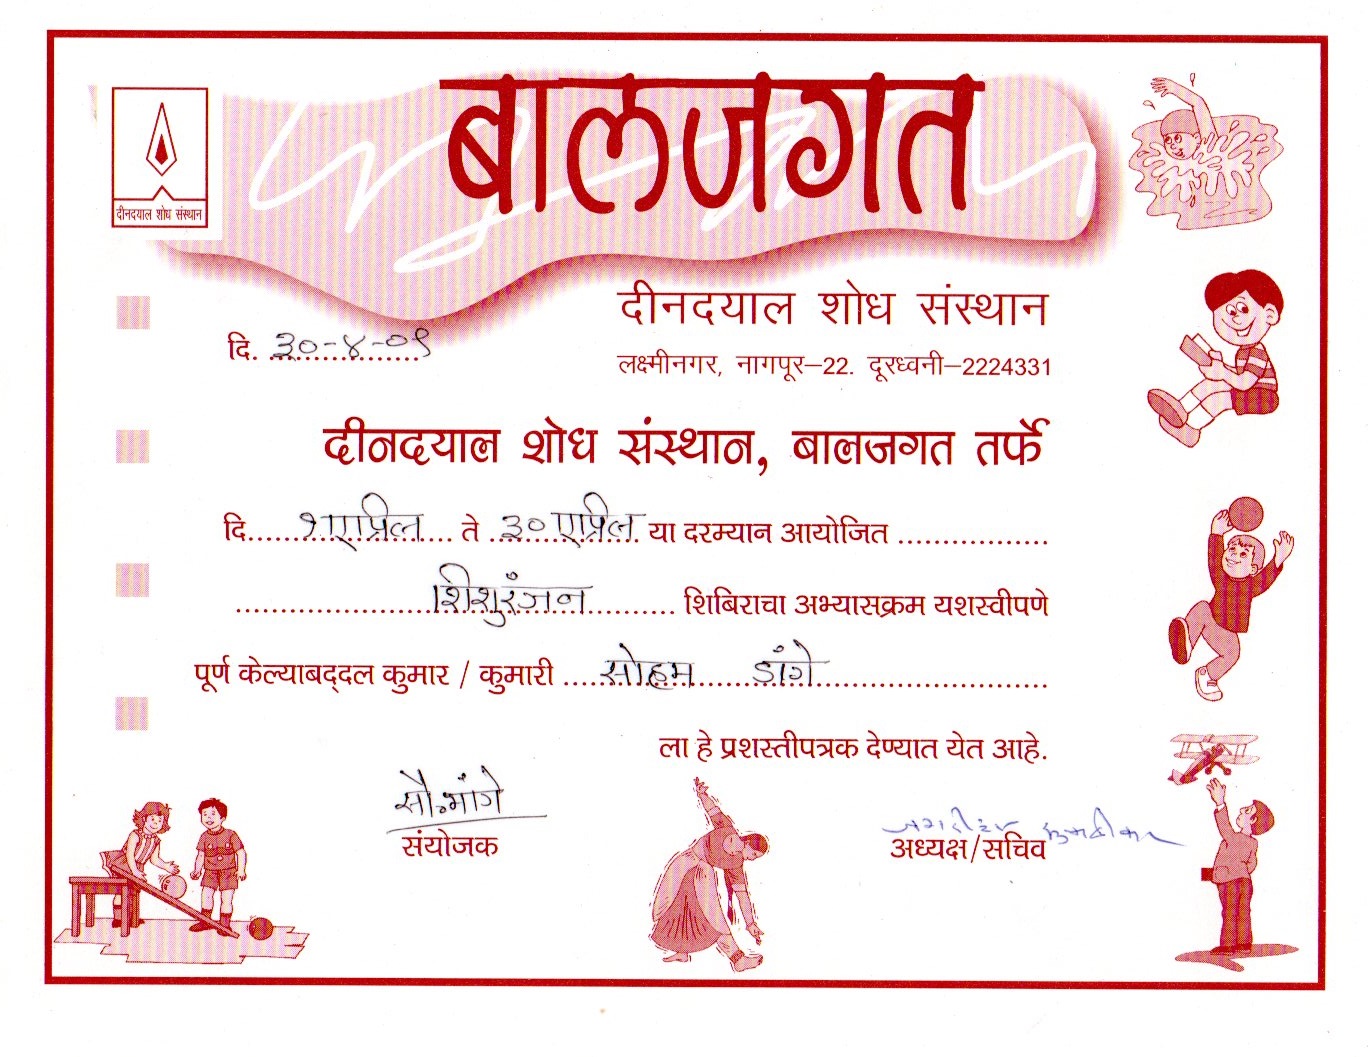 बालजगत
दीनदयाल शोध संस्थान
दीनदयाल शोध संस्थान
लक्ष्मीनगर, नागपूर–22. दूरध्वनी–2224331
दि. ३०-४-०९
दीनदयाल शोध संस्थान, बालजगत तर्फे
दि..... १ एप्रिल ..... ते ..३० एप्रिल.. या दरम्यान आयोजित ................
........................ शिशुरंजन ............ शिबिराचा अभ्यासक्रम यशस्वीपणे
पूर्ण केल्याबद्दल कुमार / कुमारी .... सोहम डांगे ........................
ला हे प्रशस्तीपत्रक देण्यात येत आहे.
सौ. भांगे
संयोजक
अध्यक्ष/सचिव